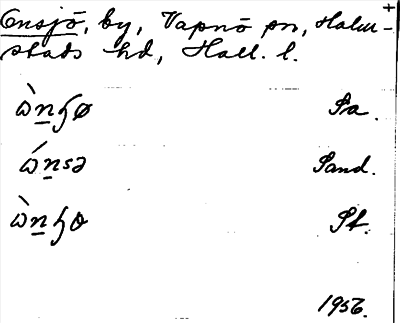 Ensjö, by, Vapnö sn, Halm-
stads hd, Hall. l.
ὼn̲ɧø Sa.
ώn̲sə Sand.
ὼn̲ɧɵ St.
1956.